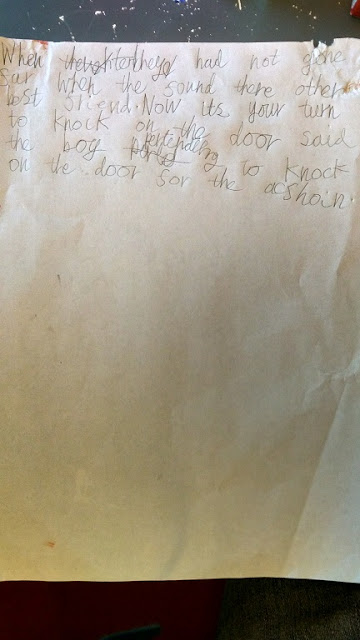 When they had not gone
Sar when the sound there other
bost Sriend. Now its your turn
to knock on the door said
the boy pertending to knock
on the door Sor the acshoin.